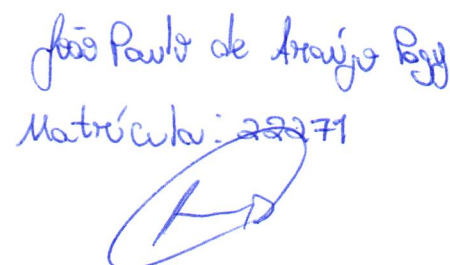 João Paulo de Araújo Pagy
Matrícula: 22271